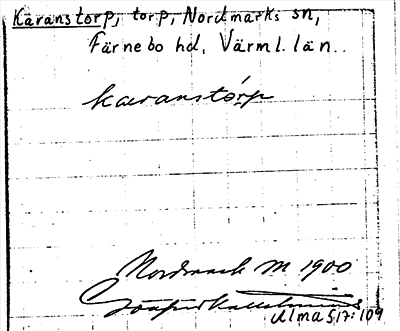 Käranstorp, torp, Nordmarks sn,
Färnebo hd, Värml. län.
kæranstórp
Nordmark M 1900
Ulma 517:109